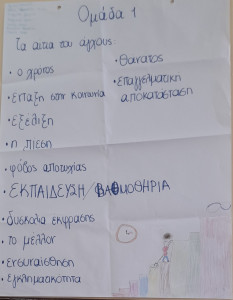 Ομάδα 1
Τα αιτια του άγχους:
• ο χρονος
• ένταξη στην κοινωνία
• εξέλιξη
• η πιεση
• φόβος αποτυχίας
• ΕΚΠΑΙΔΕΥΣΗ/ΒΑΘΜΟΘΗΡΙΑ
• δυσκολια εκφρασης
• το μέλλον
• ενσυναισθηση
• εγκληματικότητα
• θανατος
• επαγγελματική
αποκατασταση